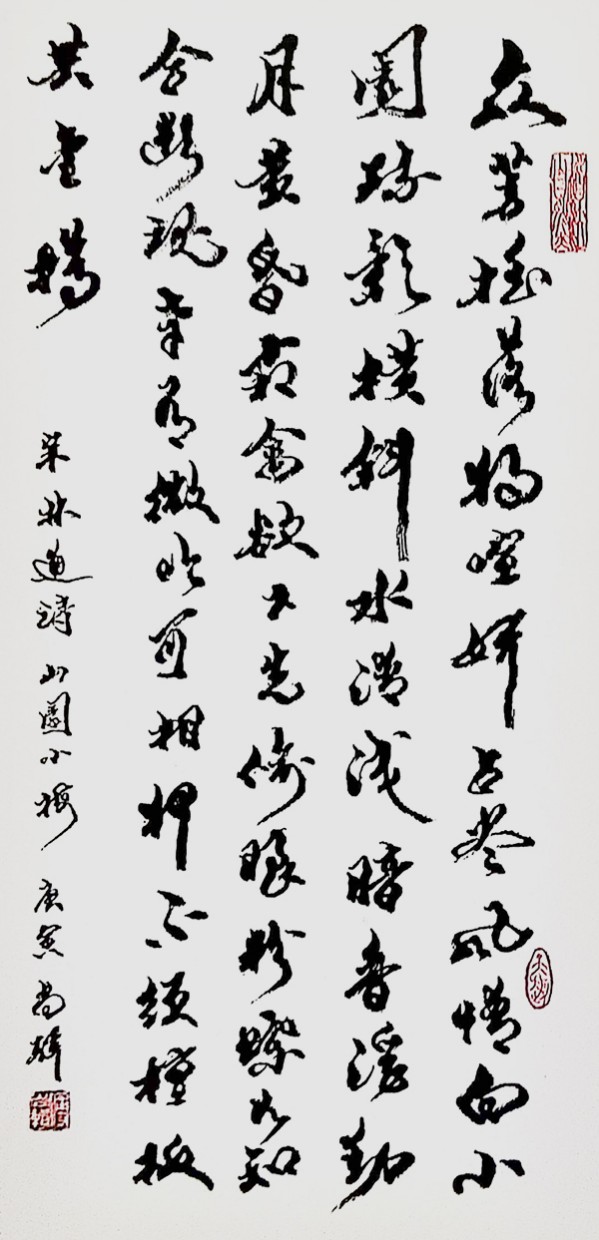 众芳摇落独暄妍占尽风情向小
園疏影横斜水清浅暗香浮動
月黄昏霜禽欲下先偷眼粉蝶如知
合断魂幸有微吟可相狎不須檀板
共金樽
宋林逋詩山園小梅 庚寅